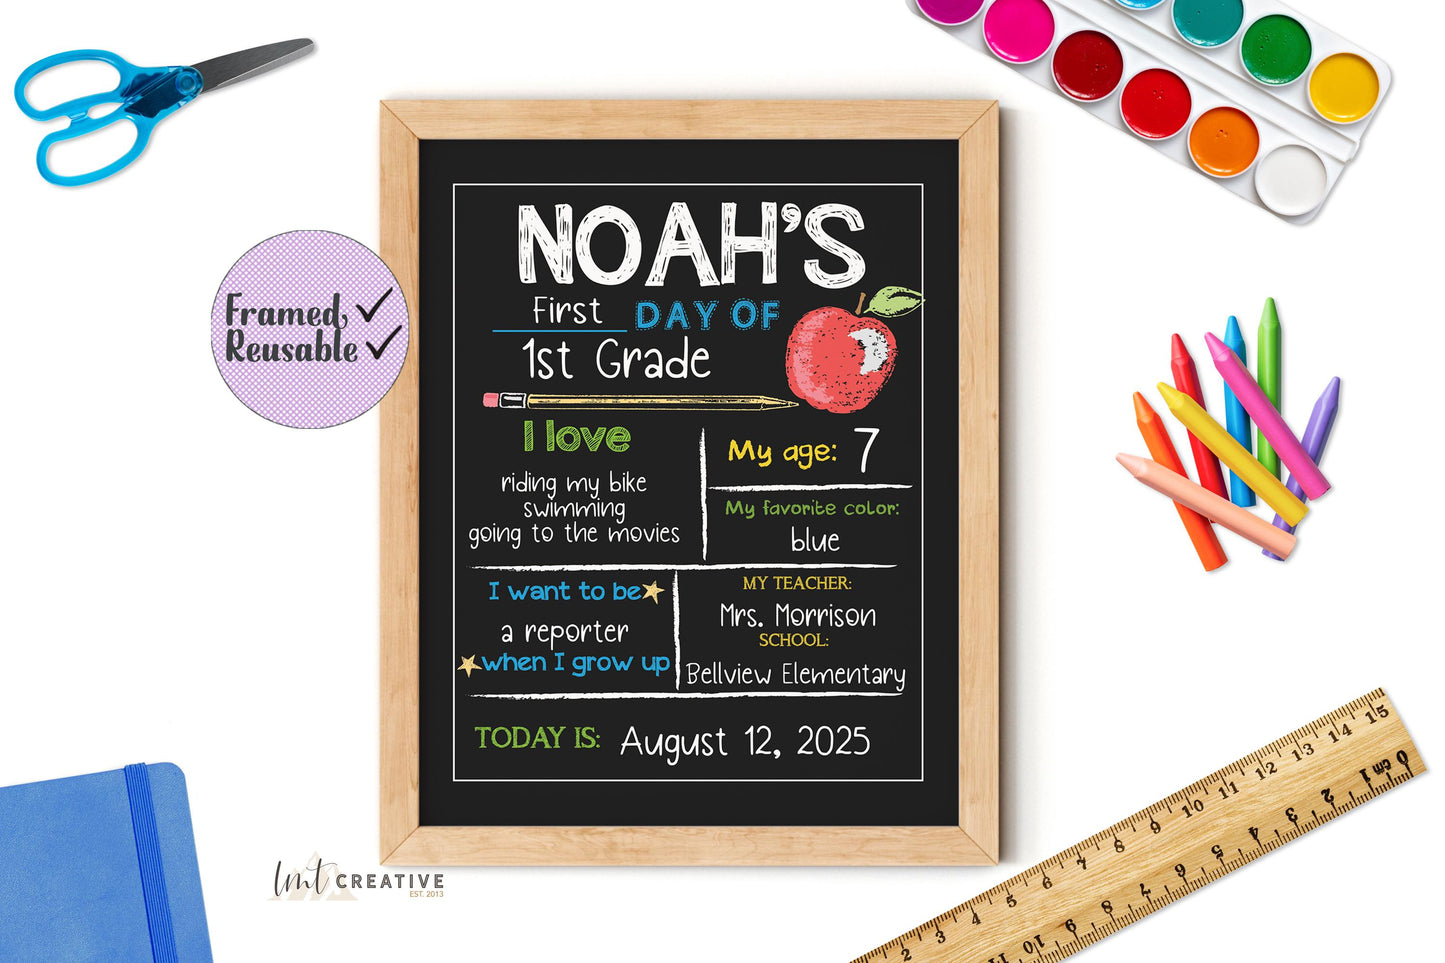 Framed
Reusable
NOAH'S
First DAY OF
1st Grade
I love
riding my bike
swimming
going to the movies
My age: 7
My favorite color:
blue
I want to be
a reporter
when I grow up
MY TEACHER:
Mrs. Morrison
SCHOOL:
Bellview Elementary
TODAY IS: August 12, 2025
lmt CREATIVE
EST. 2013
2 3 4 5 6 7 8 9 10 11 12 13 14 15
0 1 cm 2 3 4 5 6 7 8 9 10